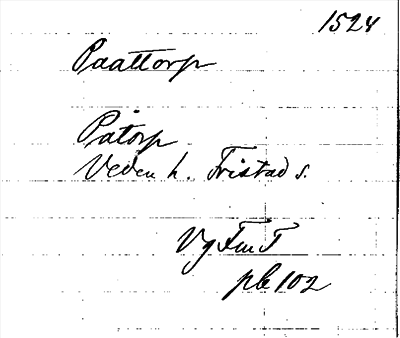 1524
Paattorp
Påtorp
Veden h. Fristad s.
Vg Fru T
pb 102